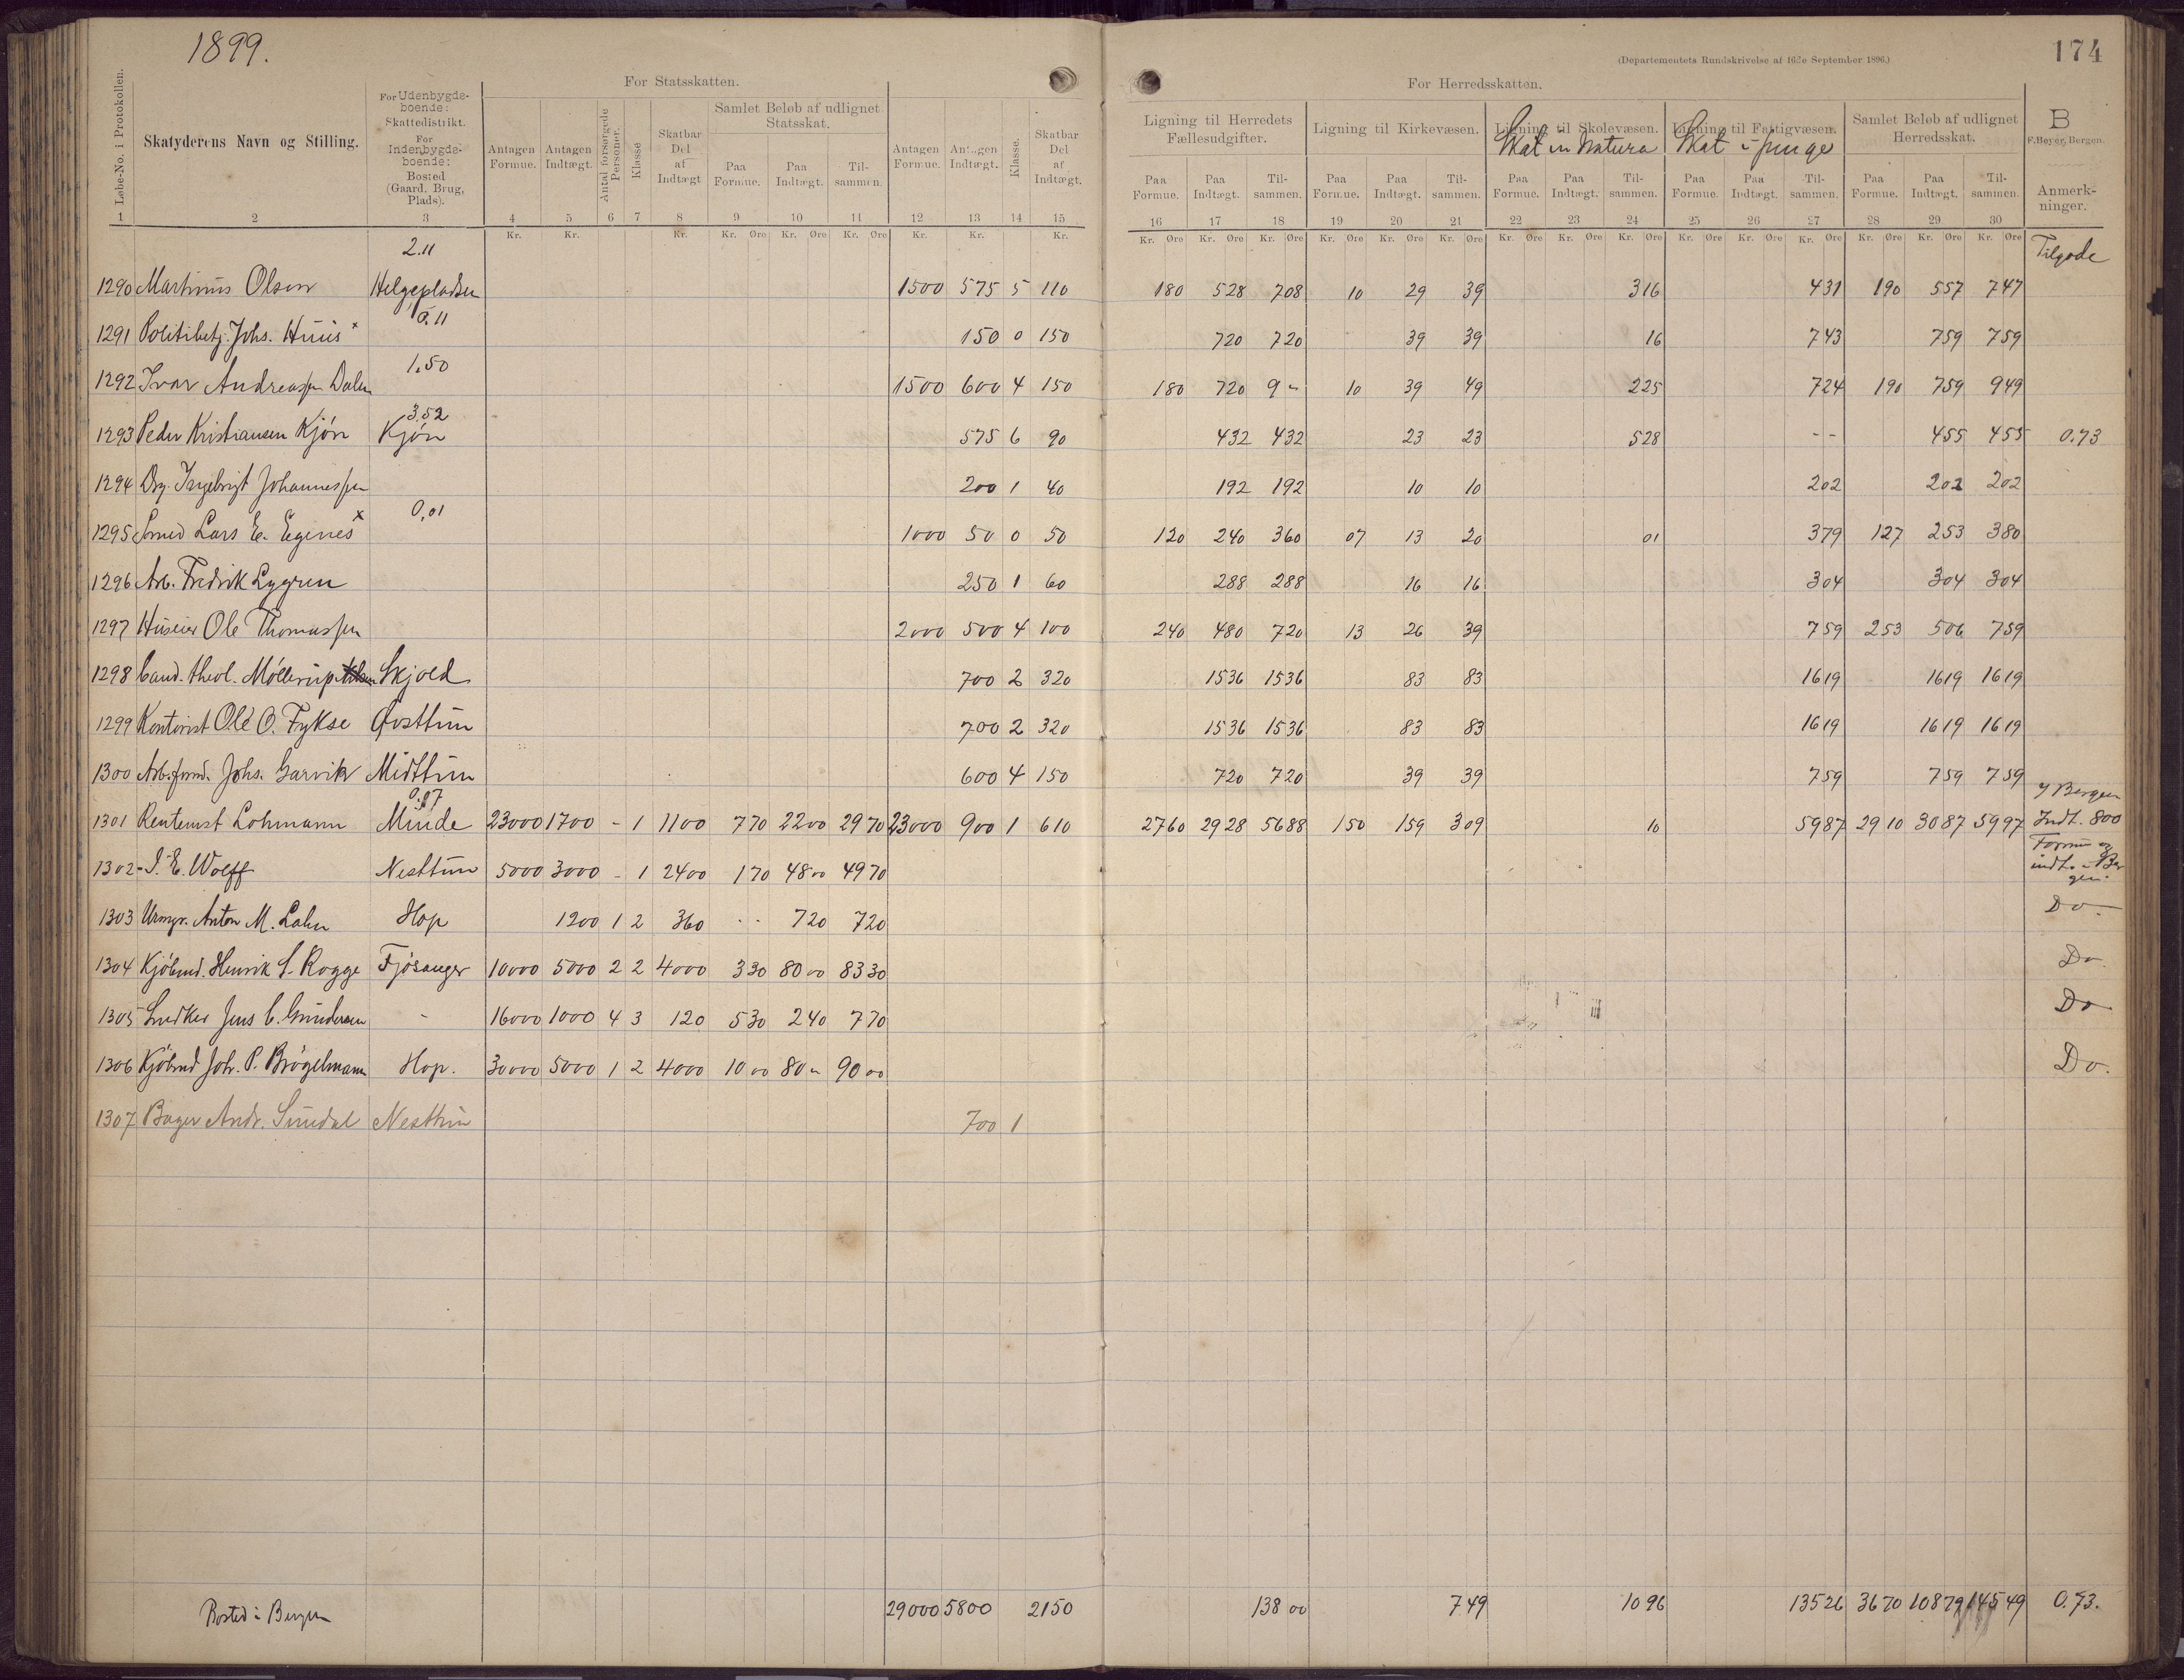 1899.
174
(Departementets Rundskrivelse af 16de September 1896.)
For Statsskatten.
For Herredsskatten.
Løbe-No. i Protokollen.
Skatyderens Navn og Stilling.
For Udenbygdsboende: Skattedistrikt. For Indenbygdsboende: Bosted (Gaard, Brug, Plads).
Antagen Formue.
Antagen Indtægt.
Antal forsørgede Personer.
Klasse
Skatbar Del af Indtægt
Samlet Beløb af udlignet Statsskat.
Paa Formue. Paa Indtægt. Tilsammen.
Antagen Formue.
Antagen Indtægt.
Klasse.
Skatbar Del af Indtægt.
Ligning til Herredets Fællesudgifter.
Ligning til Kirkevæsen.
Ligning til Skolevæsen.
Skat in Natura
Ligning til Fattigvæsen.
Skat i penge
Samlet Beløb af udlignet Herredsskat.
B
F. Beyer, Bergen.
Anmerkninger.
Paa Formue. Paa Indtægt. Tilsammen. Paa Formue. Paa Indtægt. Tilsammen. Paa Formue. Paa Indtægt. Tilsammen. Paa Formue. Paa Indtægt. Tilsammen. Paa Formue. Paa Indtægt. Tilsammen.
1 2 3 4 5 6 7 8 9 10 11 12 13 14 15 16 17 18 19 20 21 22 23 24 25 26 27 28 29 30
Kr. Kr. Kr. Kr. Øre Kr. Øre Kr. Øre Kr. Kr. Kr. Kr. Øre Kr. Øre Kr. Øre Kr. Øre Kr. Øre Kr. Øre Kr. Øre Kr. Øre Kr. Øre Kr. Øre Kr. Øre Kr. Øre Kr. Øre Kr. Øre Kr. Øre
Tilgode
2.11
1290 Martinus Olsen Helgepladsen 1500 575 5 110 180 528 708 10 29 39 316 431 190 557 747
0.11
1291 Politibetj. Johs. Huus x 150 0 150 720 720 39 39 16 743 759 759
1.50
1292 Ivar Andreassen Dalen 1500 600 4 150 180 720 9 - 10 39 49 225 724 190 759 949
3.52
1293 Peder Kristiansen Kjøn Kjøn 575 6 90 432 432 23 23 528 - - 455 455 0.73
1294 Ingebrigt Johannessen 200 1 40 192 192 10 10 202 202 202
0,01
1295 Smed Lars E. Egenes x 1000 50 0 50 120 240 360 07 13 20 01 379 127 253 380
1296 Arb. Fredrik Lygren 250 1 60 288 288 16 16 304 304 304
1297 Huseier Ole Thomassen 2000 500 4 100 240 480 720 13 26 39 759 253 506 759
1298 Cand. theol. Møllerup Skjold 700 2 320 1536 1536 83 83 1619 1619 1619
1299 Kontorist Ole O. Fykse Øvsttun 700 2 320 1536 1536 83 83 1619 1619 1619
1300 Arb.formd. Johs. Garvik Midttun 600 4 150 720 720 39 39 759 759 759
1301 Rentemst Lohmann Minde 23000 1700 - 1 1100 770 2200 2970 23000 900 1 610 2760 2928 5688 150 159 309 10 5987 2910 3087 5997 I Bergen Indt. 800
1302 I. E. Wolff Nesttun 5000 3000 - 1 2400 170 4800 4970 Formue og indt. i Bergen.
1303 Urmgr. Anton M. Lahn Hop 1200 1 2 360 - - 720 720 Do.
1304 Kjøbmd. Henrik S. Rogge Fjøsanger 10000 5000 2 2 4000 330 8000 8330 Do.
1305 Snedker Jens C. Gundersen - 16000 1000 4 3 120 530 240 770 Do
1306 Kjøbmd Joh. P. Brøgelmann Hop. 30000 5000 1 2 4000 1000 80 - 9000 Do.
1307 Bager Andr. Sundal Nesttun 700 1
Bosted i Bergen 29000 5800 2150 13800 749 1096 13526 3670 10879 14549 0.73.